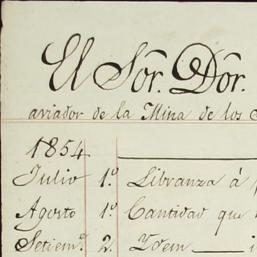 El Sõr. Dõr.
aviador de la Mina de los
1854
Julio 1.º Libranza á
Agosto 1.º Cantidad que
Setiem.e 2. Ydem